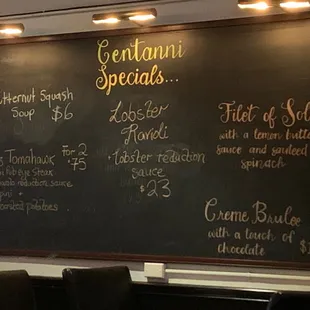 Centanni
Specials...
Butternut Squash
Soup $6
Tomahawk For 2
Ribeye Steak $75
reduction sauce
potatoes
Lobster
Ravioli
Lobster reduction
sauce
$23
Filet of Sol
with a lemon butte
sauce and sauteed
spinach
Creme Brulee
with a touch of
chocolate $